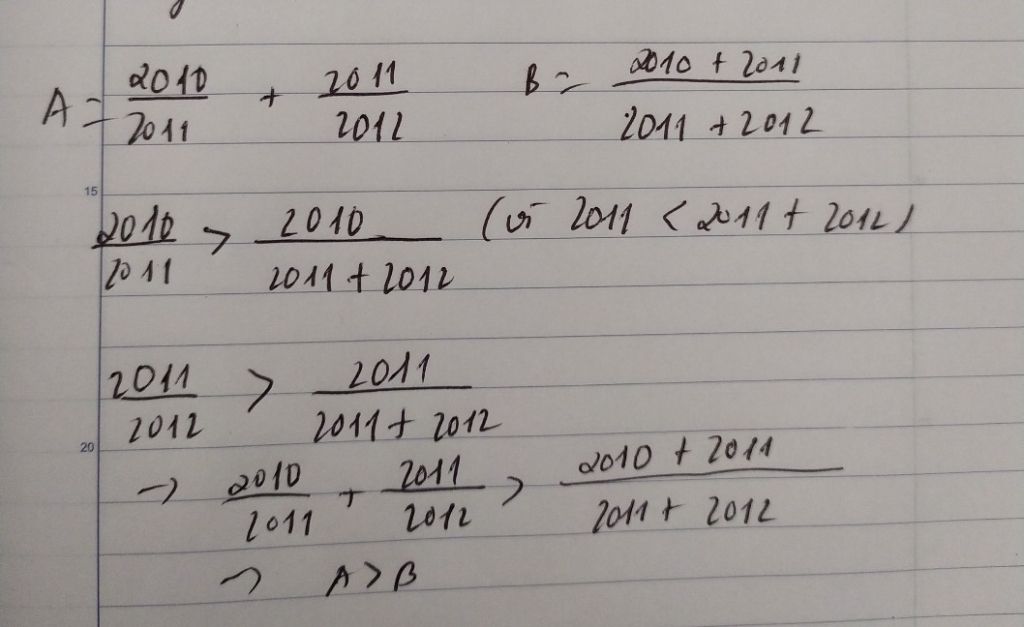 A = 2010/2011 + 2011/2012 B = (2010 + 2011)/(2011 + 2012)
15
2010/2011 > 2010/(2011 + 2012) (vì 2011 < 2011 + 2012)
2011/2012 > 2011/(2011 + 2012)
20
→ 2010/2011 + 2011/2012 > (2010 + 2011)/(2011 + 2012)
→ A > B